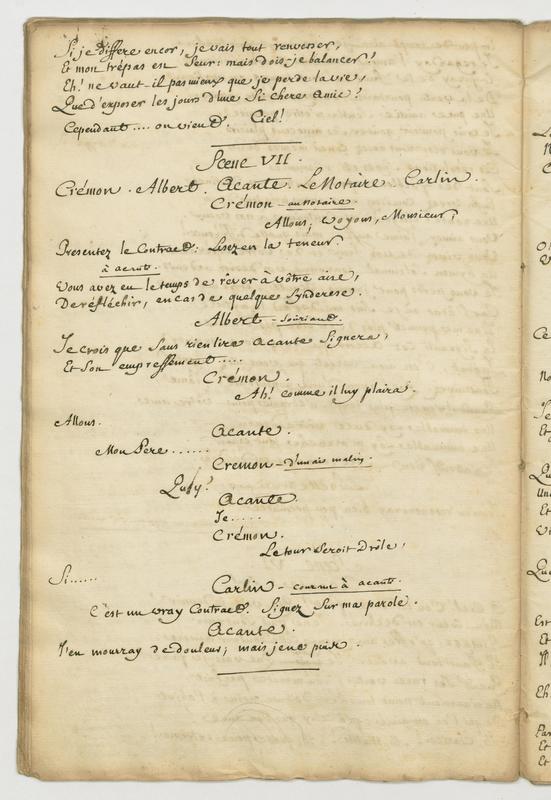 Si je differe encor, je vais tout renverser,
Et mon trépas est Seur: mais dois-je balancer?
Eh! ne vaut-il pas mieux que je perde la vie,
Que d'exposer les jours d'une Si chere Amie?
Cependant.... on vient. Ciel!
Scene VII.
Crémon. Albert. Acante. Le Notaire Carlin.
Crémon - au Notaire.
Allons, voyons, Monsieur,
Presentez le Contract: Lisez en la teneur.
à acante.
Vous avez eu le temps de rêver à vôtre aise,
De réfléchir, en cas de quelque Synderese.
Albert - souriant.
Je crois que sans rien lire Acante Signera,
Et Son empressement.....
Crémon.
Ah! comme il luy plaira.
Allons.
Acante.
Mon Pere......
Cremon - d'un air malin.
Quoy?
Acante.
Je.....
Crémon.
Le tour Seroit Drôle,
Si......
Carlin - comme à acante.
C'est un vray Contract. Signez Sur ma parole.
Acante.
J'en mourray de douleur; mais je ne puis.